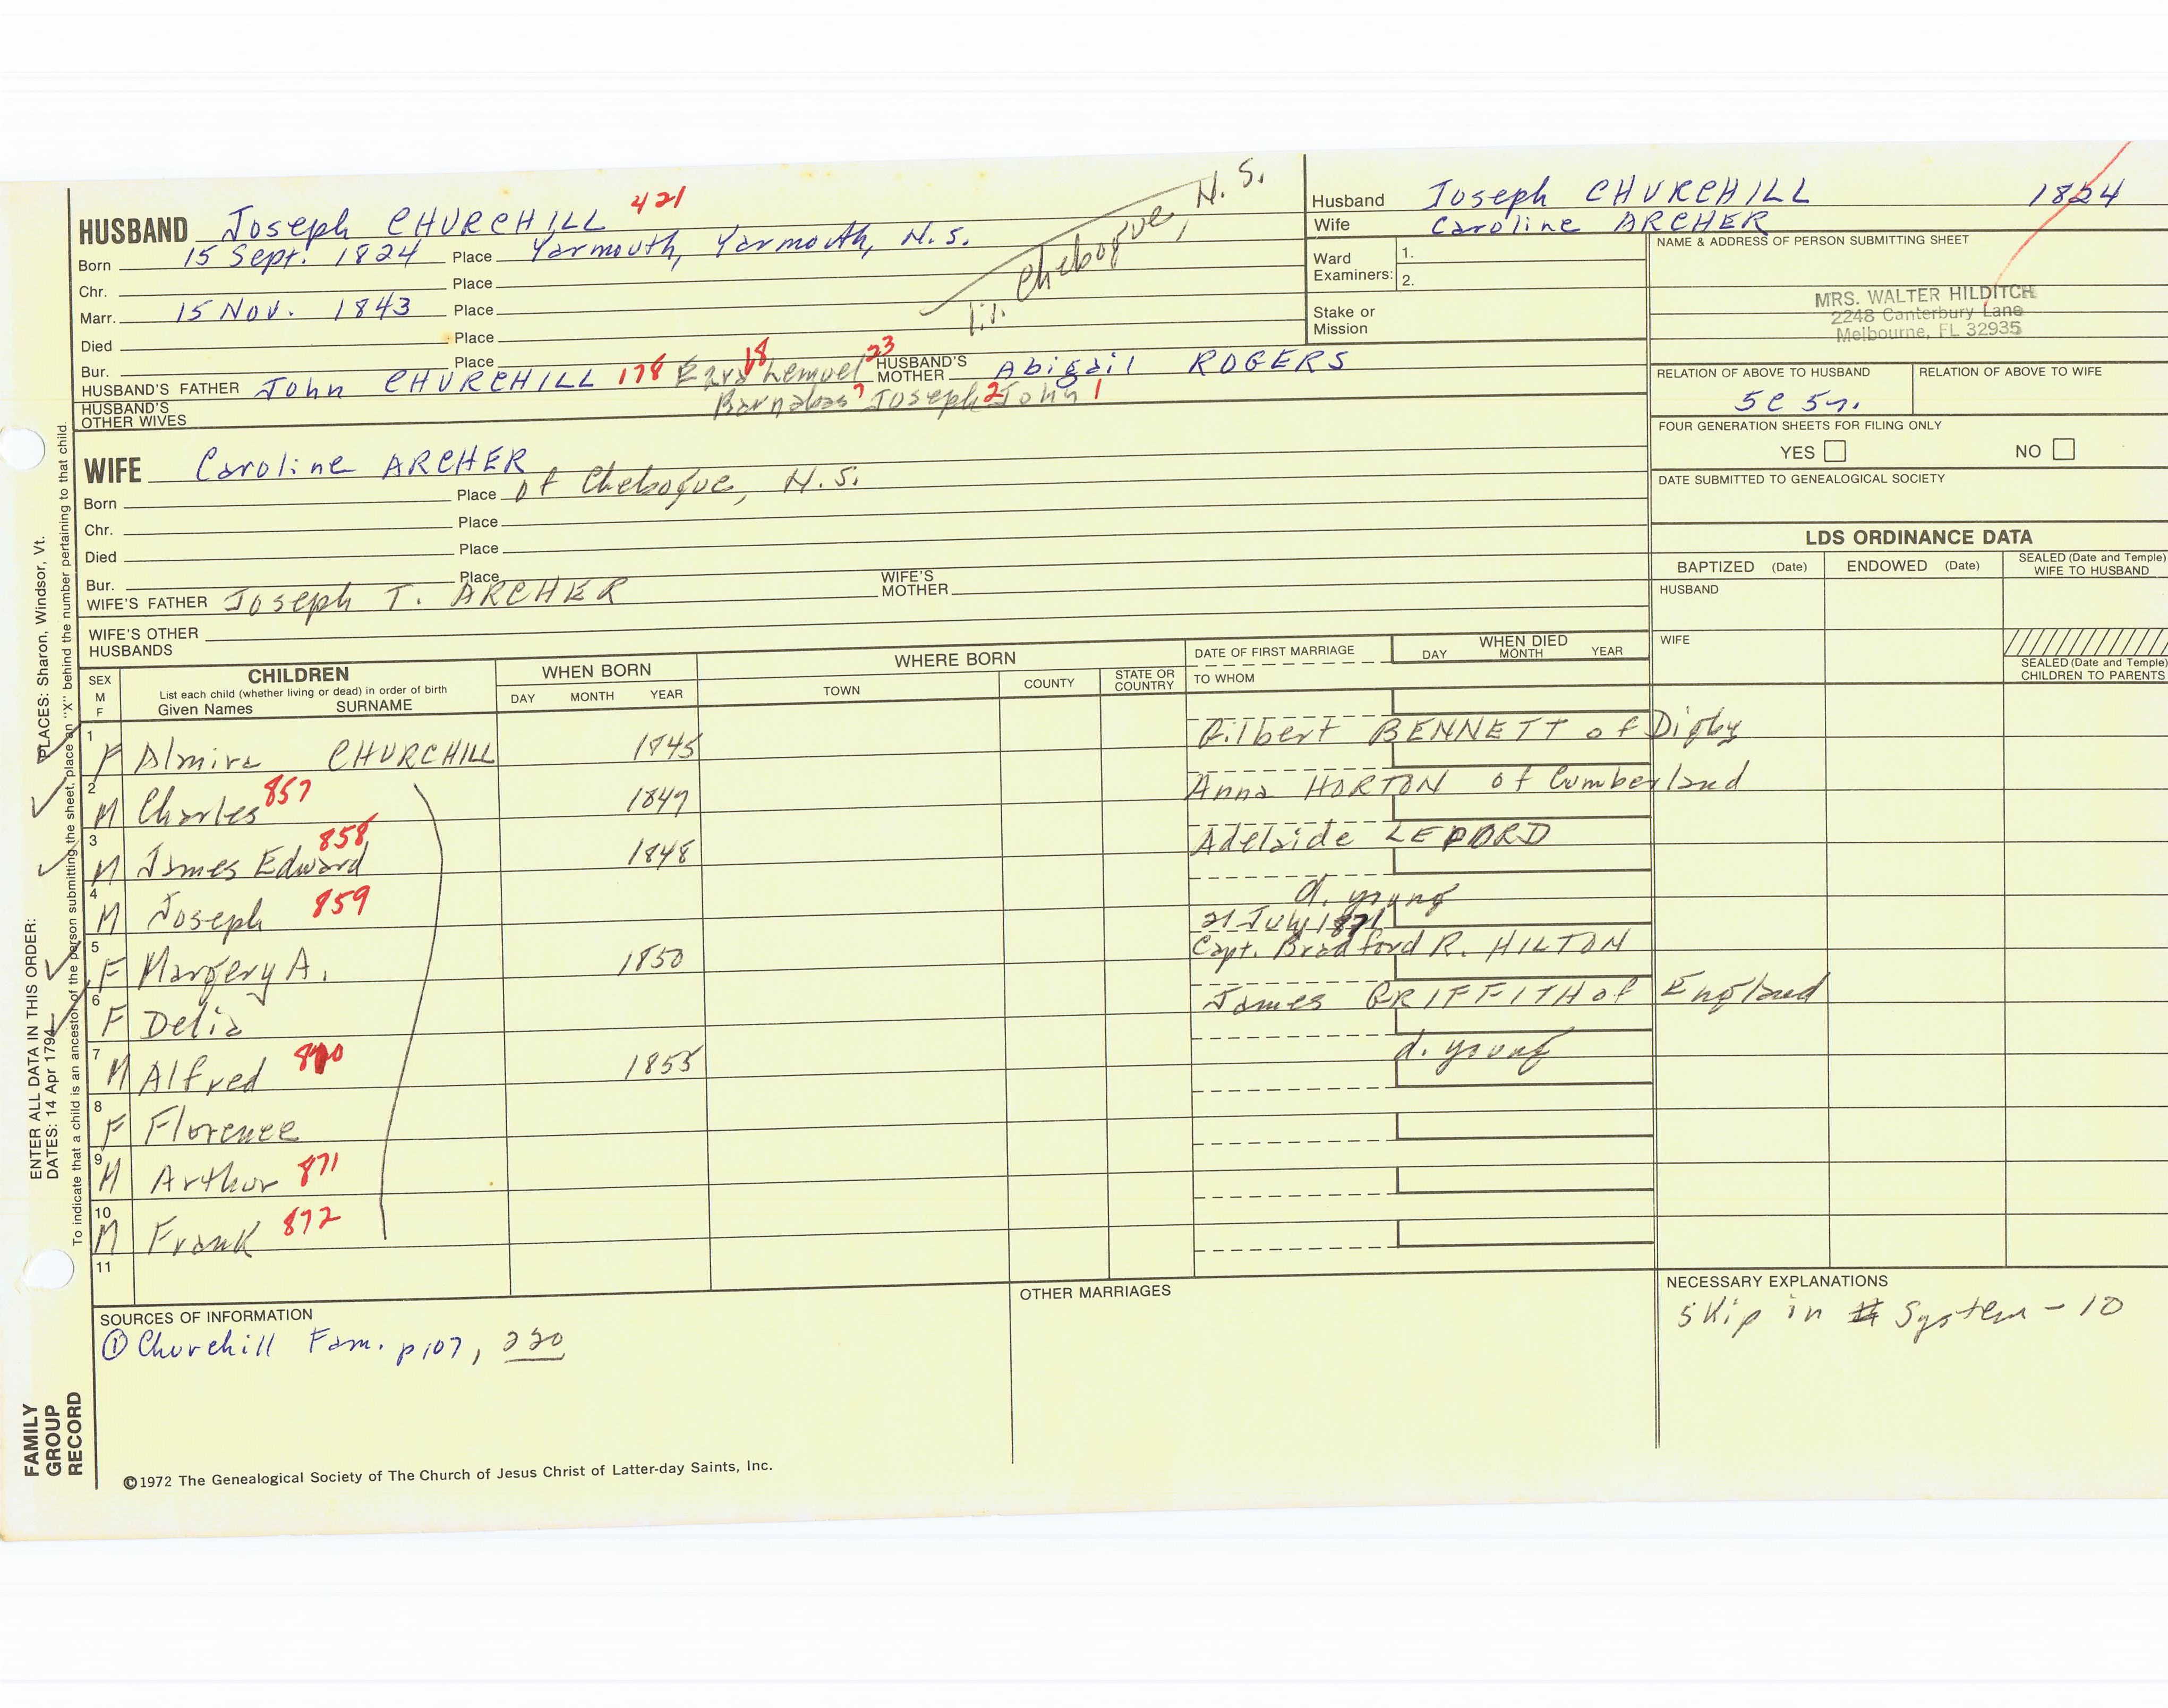 HUSBAND Joseph CHURCHILL 421
Born 15 Sept. 1824 Place Yarmouth, Yarmouth, N.S.
Chr. Place
Marr. 15 Nov. 1843 Place
Died Place
Bur. Place
li. Chebogue, N.S.
HUSBAND'S FATHER John CHURCHILL 178 Ezra 18 Lemuel 23 HUSBAND'S MOTHER Abigail ROGERS
Barnabas 7 Joseph 2 John 1
HUSBAND'S OTHER WIVES
Husband Joseph CHURCHILL 1824
Wife Caroline ARCHER
Ward Examiners: 1.
2.
Stake or Mission
NAME & ADDRESS OF PERSON SUBMITTING SHEET
MRS. WALTER HILDITCH
2248 Canterbury Lane
Melbourne, FL 32935
RELATION OF ABOVE TO HUSBAND RELATION OF ABOVE TO WIFE
5c 5r.
FOUR GENERATION SHEETS FOR FILING ONLY
YES NO
DATE SUBMITTED TO GENEALOGICAL SOCIETY
WIFE Caroline ARCHER
Born Place of Chebogue, N.S.
Chr. Place
Died Place
Bur. Place
WIFE'S FATHER Joseph T. ARCHER WIFE'S MOTHER
WIFE'S OTHER HUSBANDS
LDS ORDINANCE DATA
BAPTIZED (Date) ENDOWED (Date) SEALED (Date and Temple) WIFE TO HUSBAND
HUSBAND
WIFE
SEALED (Date and Temple) CHILDREN TO PARENTS
SEX M F
CHILDREN
List each child (whether living or dead) in order of birth
Given Names SURNAME
WHEN BORN
DAY MONTH YEAR
WHERE BORN
TOWN COUNTY STATE OR COUNTRY
DATE OF FIRST MARRIAGE
TO WHOM
WHEN DIED
DAY MONTH YEAR
1 F Almira CHURCHILL 1845 Gilbert BENNETT of Digby
2 M Charles 857 1847 Anna HORTON of Cumberland
3 M James Edward 858 1848 Adelaide LEPORD
4 M Joseph 859 d. young
21 July 1871
5 F Margery A. 1850 Capt. Bradford R. HILTON
6 F Delia James GRIFFITH of England
7 M Alfred 870 1855 d. young
8 F Florence
9 M Arthur 871
10 M Frank 872
11
SOURCES OF INFORMATION
① Churchill Fam. p107, 220
OTHER MARRIAGES
NECESSARY EXPLANATIONS
Skip in # System - 10
©1972 The Genealogical Society of The Church of Jesus Christ of Latter-day Saints, Inc.
FAMILY GROUP RECORD
ENTER ALL DATA IN THIS ORDER:
DATES: 14 Apr 1794
PLACES: Sharon, Windsor, Vt.
To indicate that a child is an ancestor of the person submitting the sheet, place an "X" behind the number pertaining to that child.